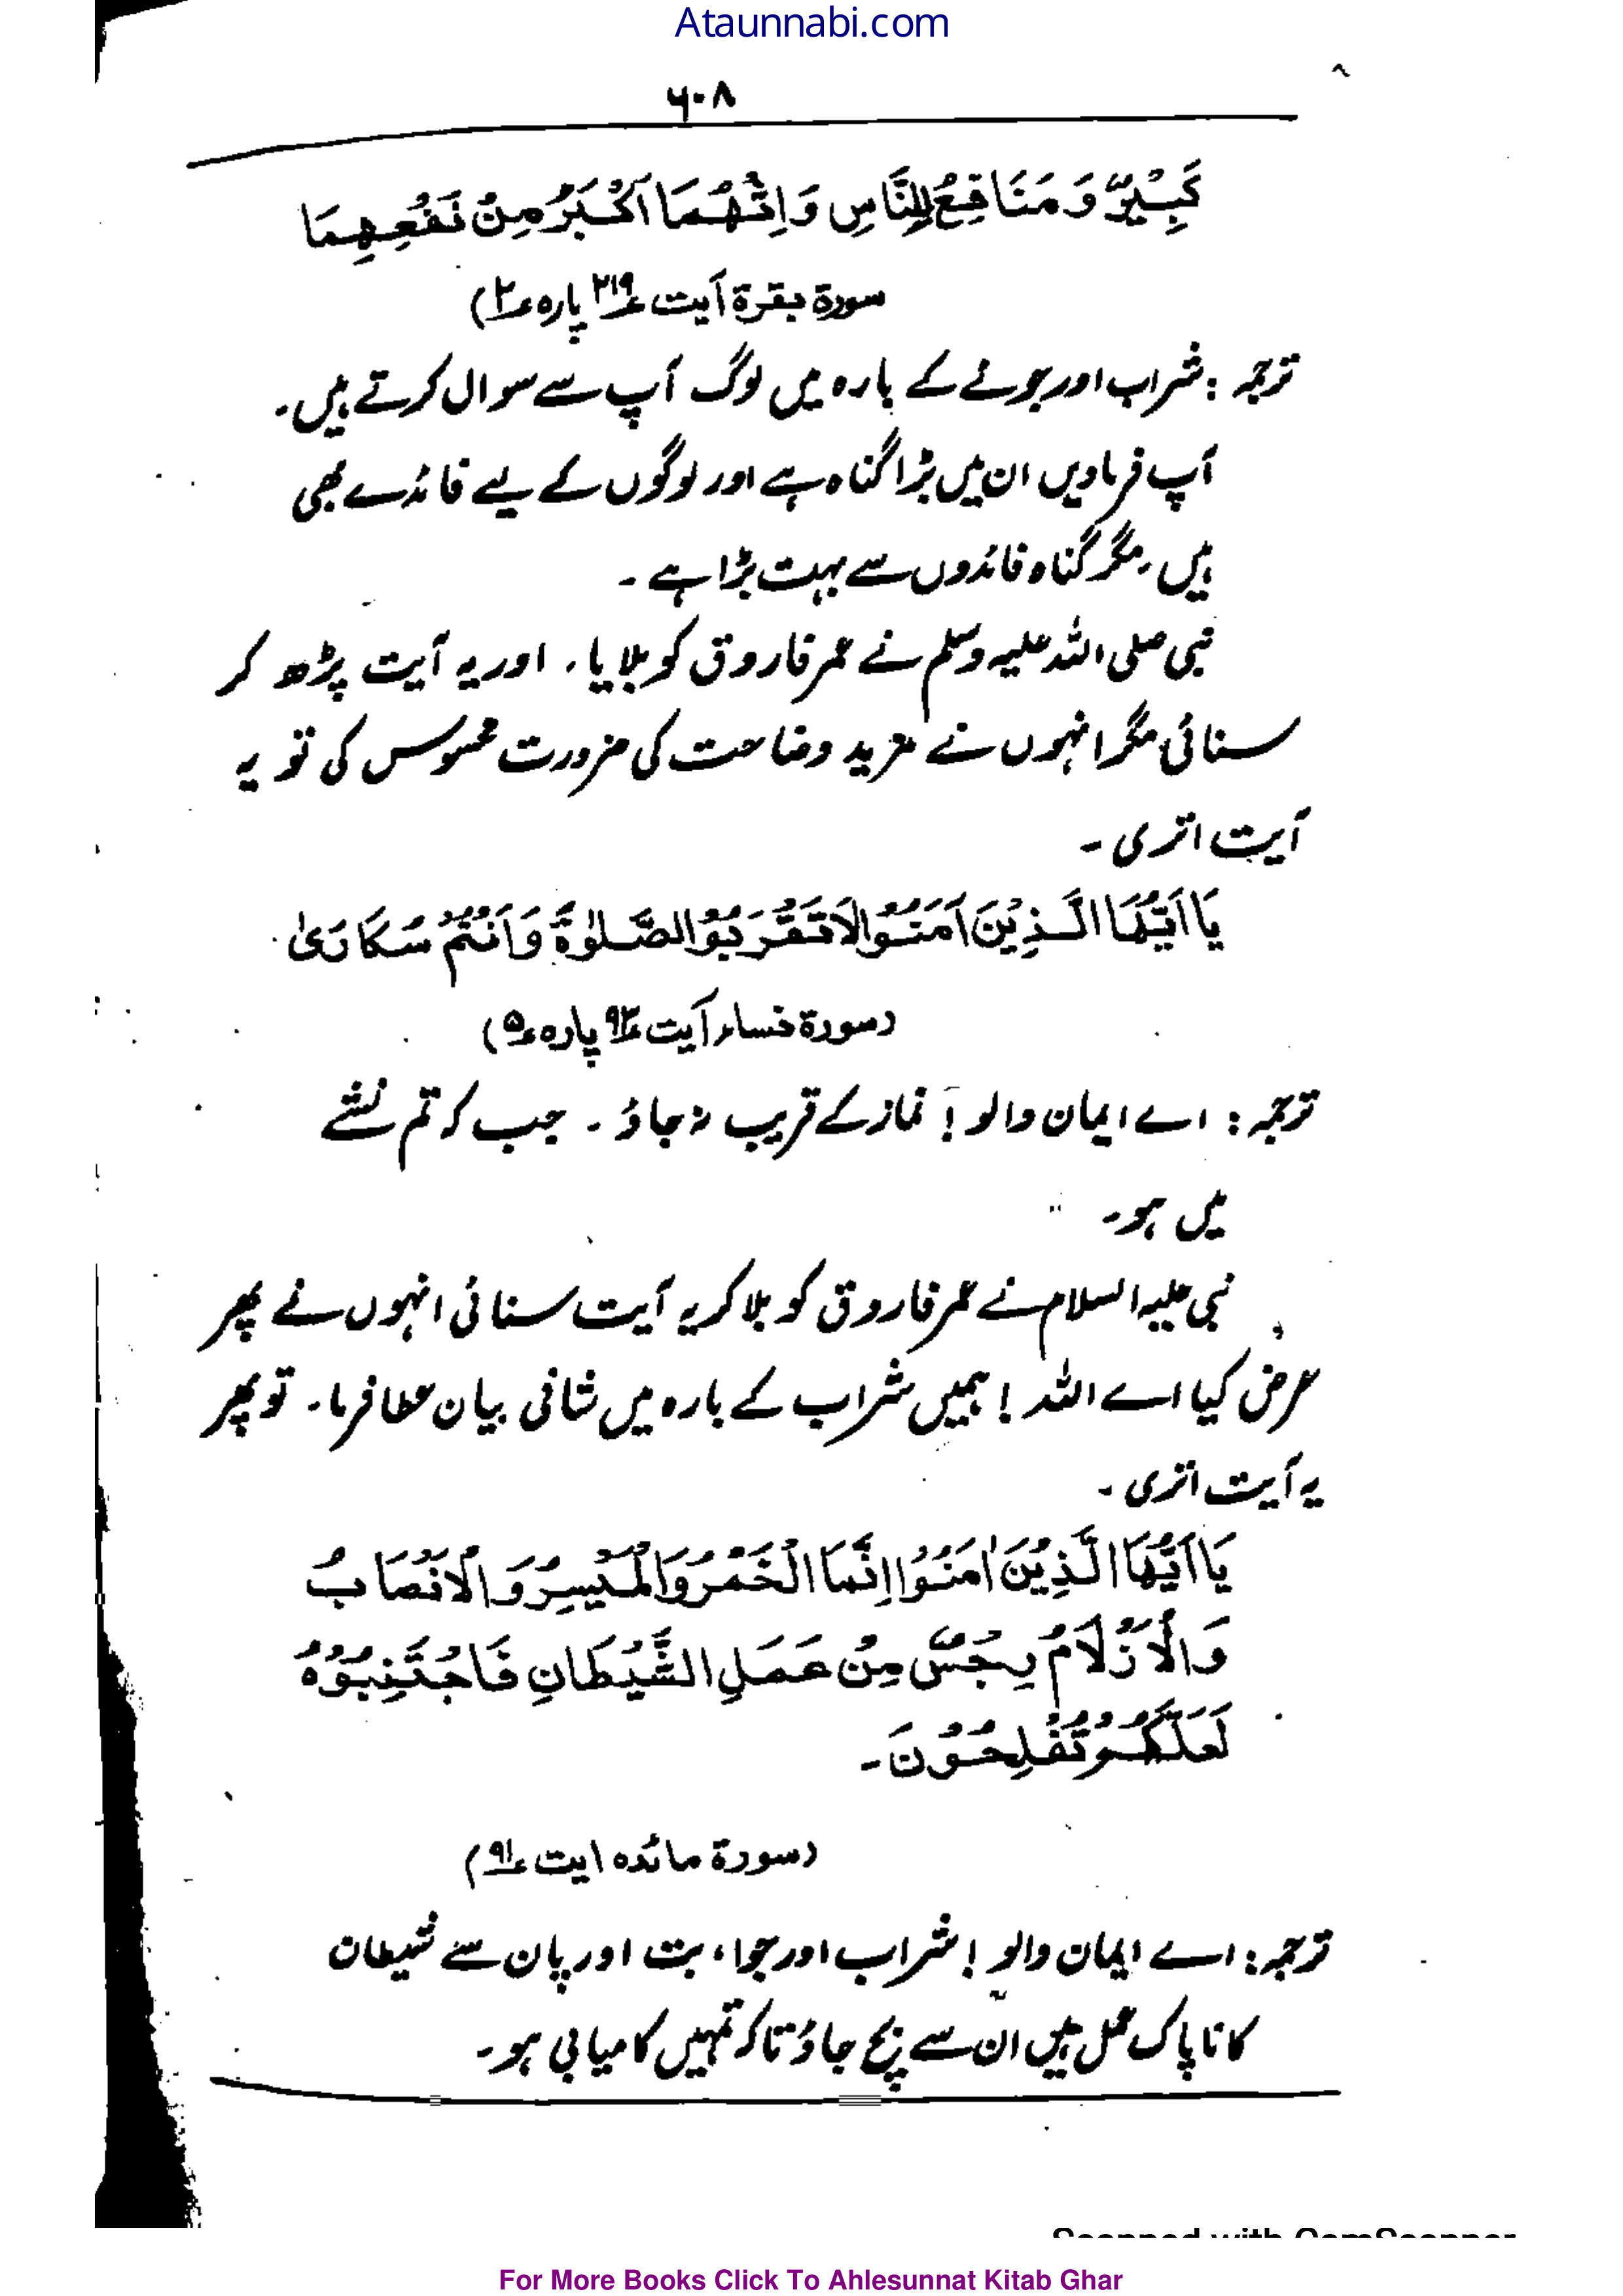 Ataunnabi.com
۶۰۸
كَبِيْرٌ وَ مَنَافِعُ لِلنَّاسِ وَ اِثْمُهُمَا اَكْبَرُ مِنْ نَفْعِهِمَا
سورة بقرة آیت ۲۱۹ پاره ۲)
ترجمہ : شراب اور جوئے کے بارہ میں لوگ آپ سے سوال کرتے ہیں۔
آپ فرمادیں ان میں بڑا گناہ ہے اور لوگوں کے لیے فائدے بھی
ہیں، مگر گناہ فائدوں سے بہت بڑا ہے ۔
نبی صلی اللہ علیہ وسلم نے عمر فاروق کو بلایا، اور یہ آیت پڑھ کر
سنائی مگر انہوں نے مزید وضاحت کی ضرورت محسوس کی تو یہ
آیت اتری ۔
يَا اَيُّهَا الَّذِيْنَ آمَنُوْا لَا تَقْرَبُوْا الصَّلٰوةَ وَ اَنْتُمْ سُكَارَىٰ
(سورة نساء آیت ۹۳ پاره ۵)
ترجمہ : اے ایمان والو ! نماز کے قریب نہ جاؤ ۔ جب کہ تم نشے
میں ہو۔
نبی علیہ السلام نے عمر فاروق کو بلا کر یہ آیت سنائی انہوں نے پھر
عرض کیا اے اللہ ! ہمیں شراب کے بارہ میں شافی بیان عطا فرما۔ تو پھر
یہ آیت اتری ۔
يَا اَيُّهَا الَّذِيْنَ اٰمَنُوْا اِنَّمَا الْخَمْرُ وَالْمَيْسِرُ وَالْاَنْصَابُ
وَالْاَزْلَامُ رِجْسٌ مِنْ عَمَلِ الشَّيْطَانِ فَاجْتَنِبُوْهُ
لَعَلَّكُمْ تُفْلِحُوْنَ۔
(سورة مائدہ ایت ۹۱)
ترجمہ : اے ایمان والو ! شراب اور جوا، بت اور پان سے شیطان
کا ناپاک عمل ہیں ان سے بچ جاؤ تاکہ تمہیں کامیابی ہو۔
Scanned with CamScanner
For More Books Click To Ahlesunnat Kitab Ghar